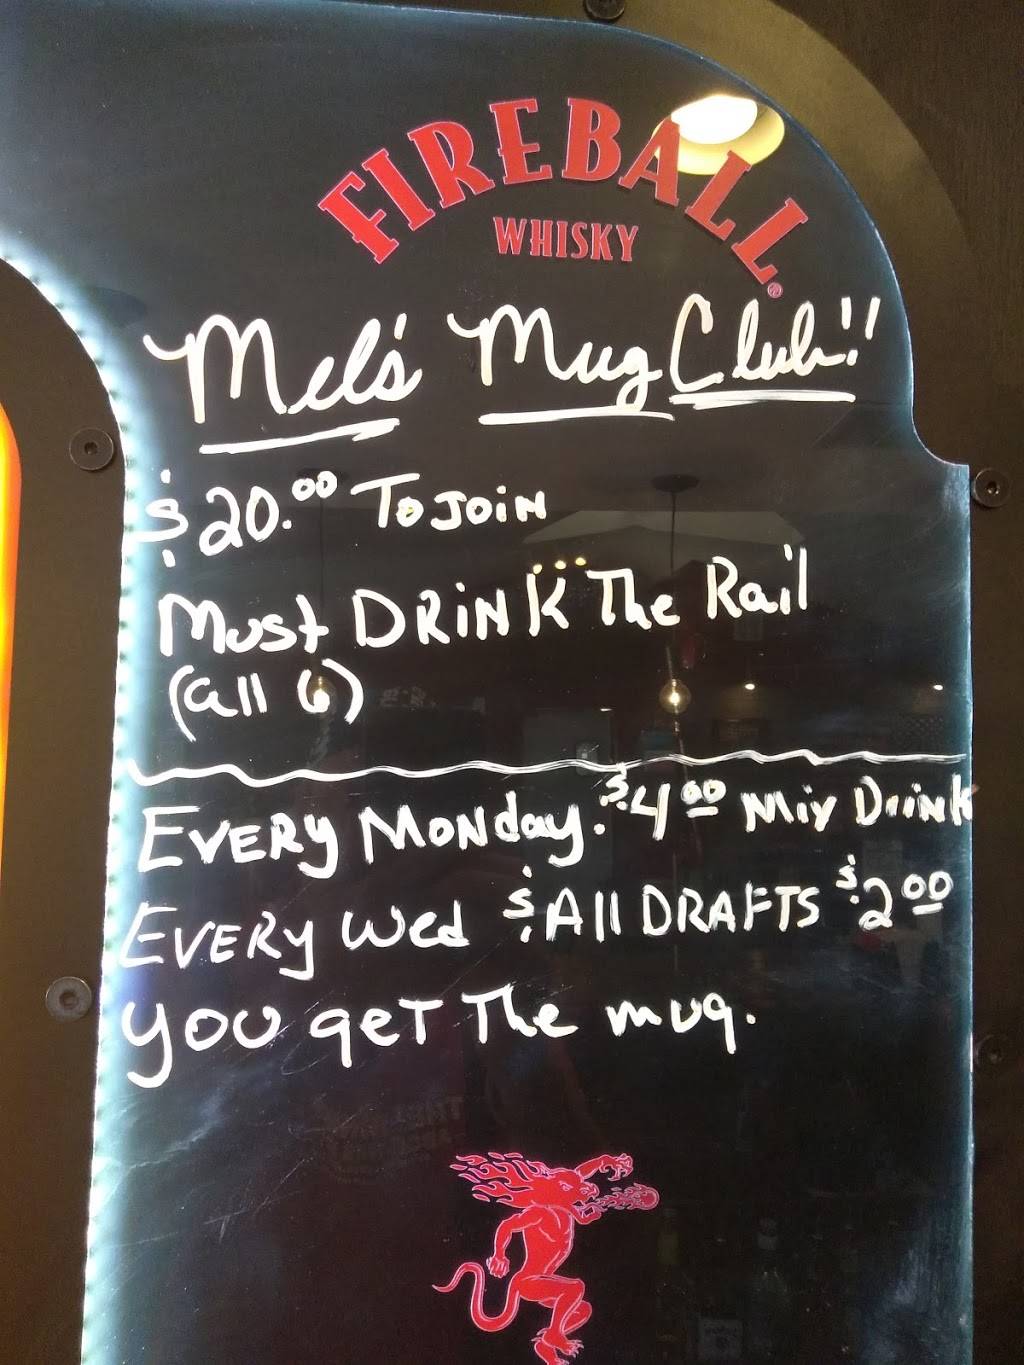 FIREBALL®
WHISKY
Mel's Mug Club!!
$20.00 To JOIN
Must DRINK The Rail
(all 6)
EVERY MONday. $4 00 Mix Drink
EVERY Wed $ All DRAFTS $2 00
YOU geT The mug.